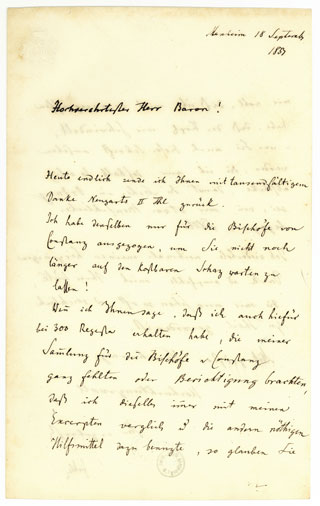 18 September
1857
Hochverehrtester Herr Baron!
Heute endlich sende ich Ihnen mit tausendfältigem
Danke Neugarts II Thl zurück.
Ich habe denselben nur für die Bischöfe von
Constanz ausgezogen, um Sie nicht noch
länger auf den kostbaren Schaz warten zu
lassen!
Wenn ich Ihnen sage, daß ich auch hiefür
bei 300 Regesten erhalten habe, die meiner
Samlung für die Bischöfe v Constanz
ganz fehlten oder Berichtigung brachten,
daß ich dieselben imer mit meinen
Excerpten verglich u die andern nöthigen
Hilfsmittel dazu benuzte, so glauben Sie